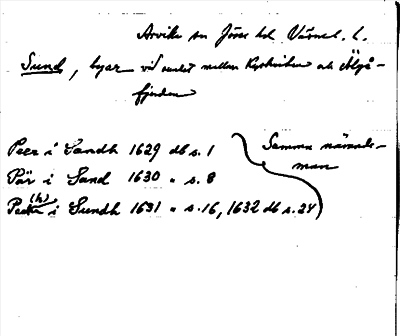 Arvika sn Jösse hd Värml. l.
Sund, byar vid sundet mellan Kyrkviken och Älgå-
fjorden
Peer i Sandh 1629 db s. 1
Pär i Sand 1630 " s. 8
Peder (h) i Sundh 1631 " s. 16, 1632 db s. 24
Samma nämnde-
man